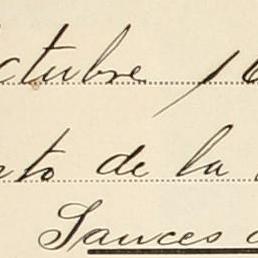 ctubre 16
rto de la
Sauces